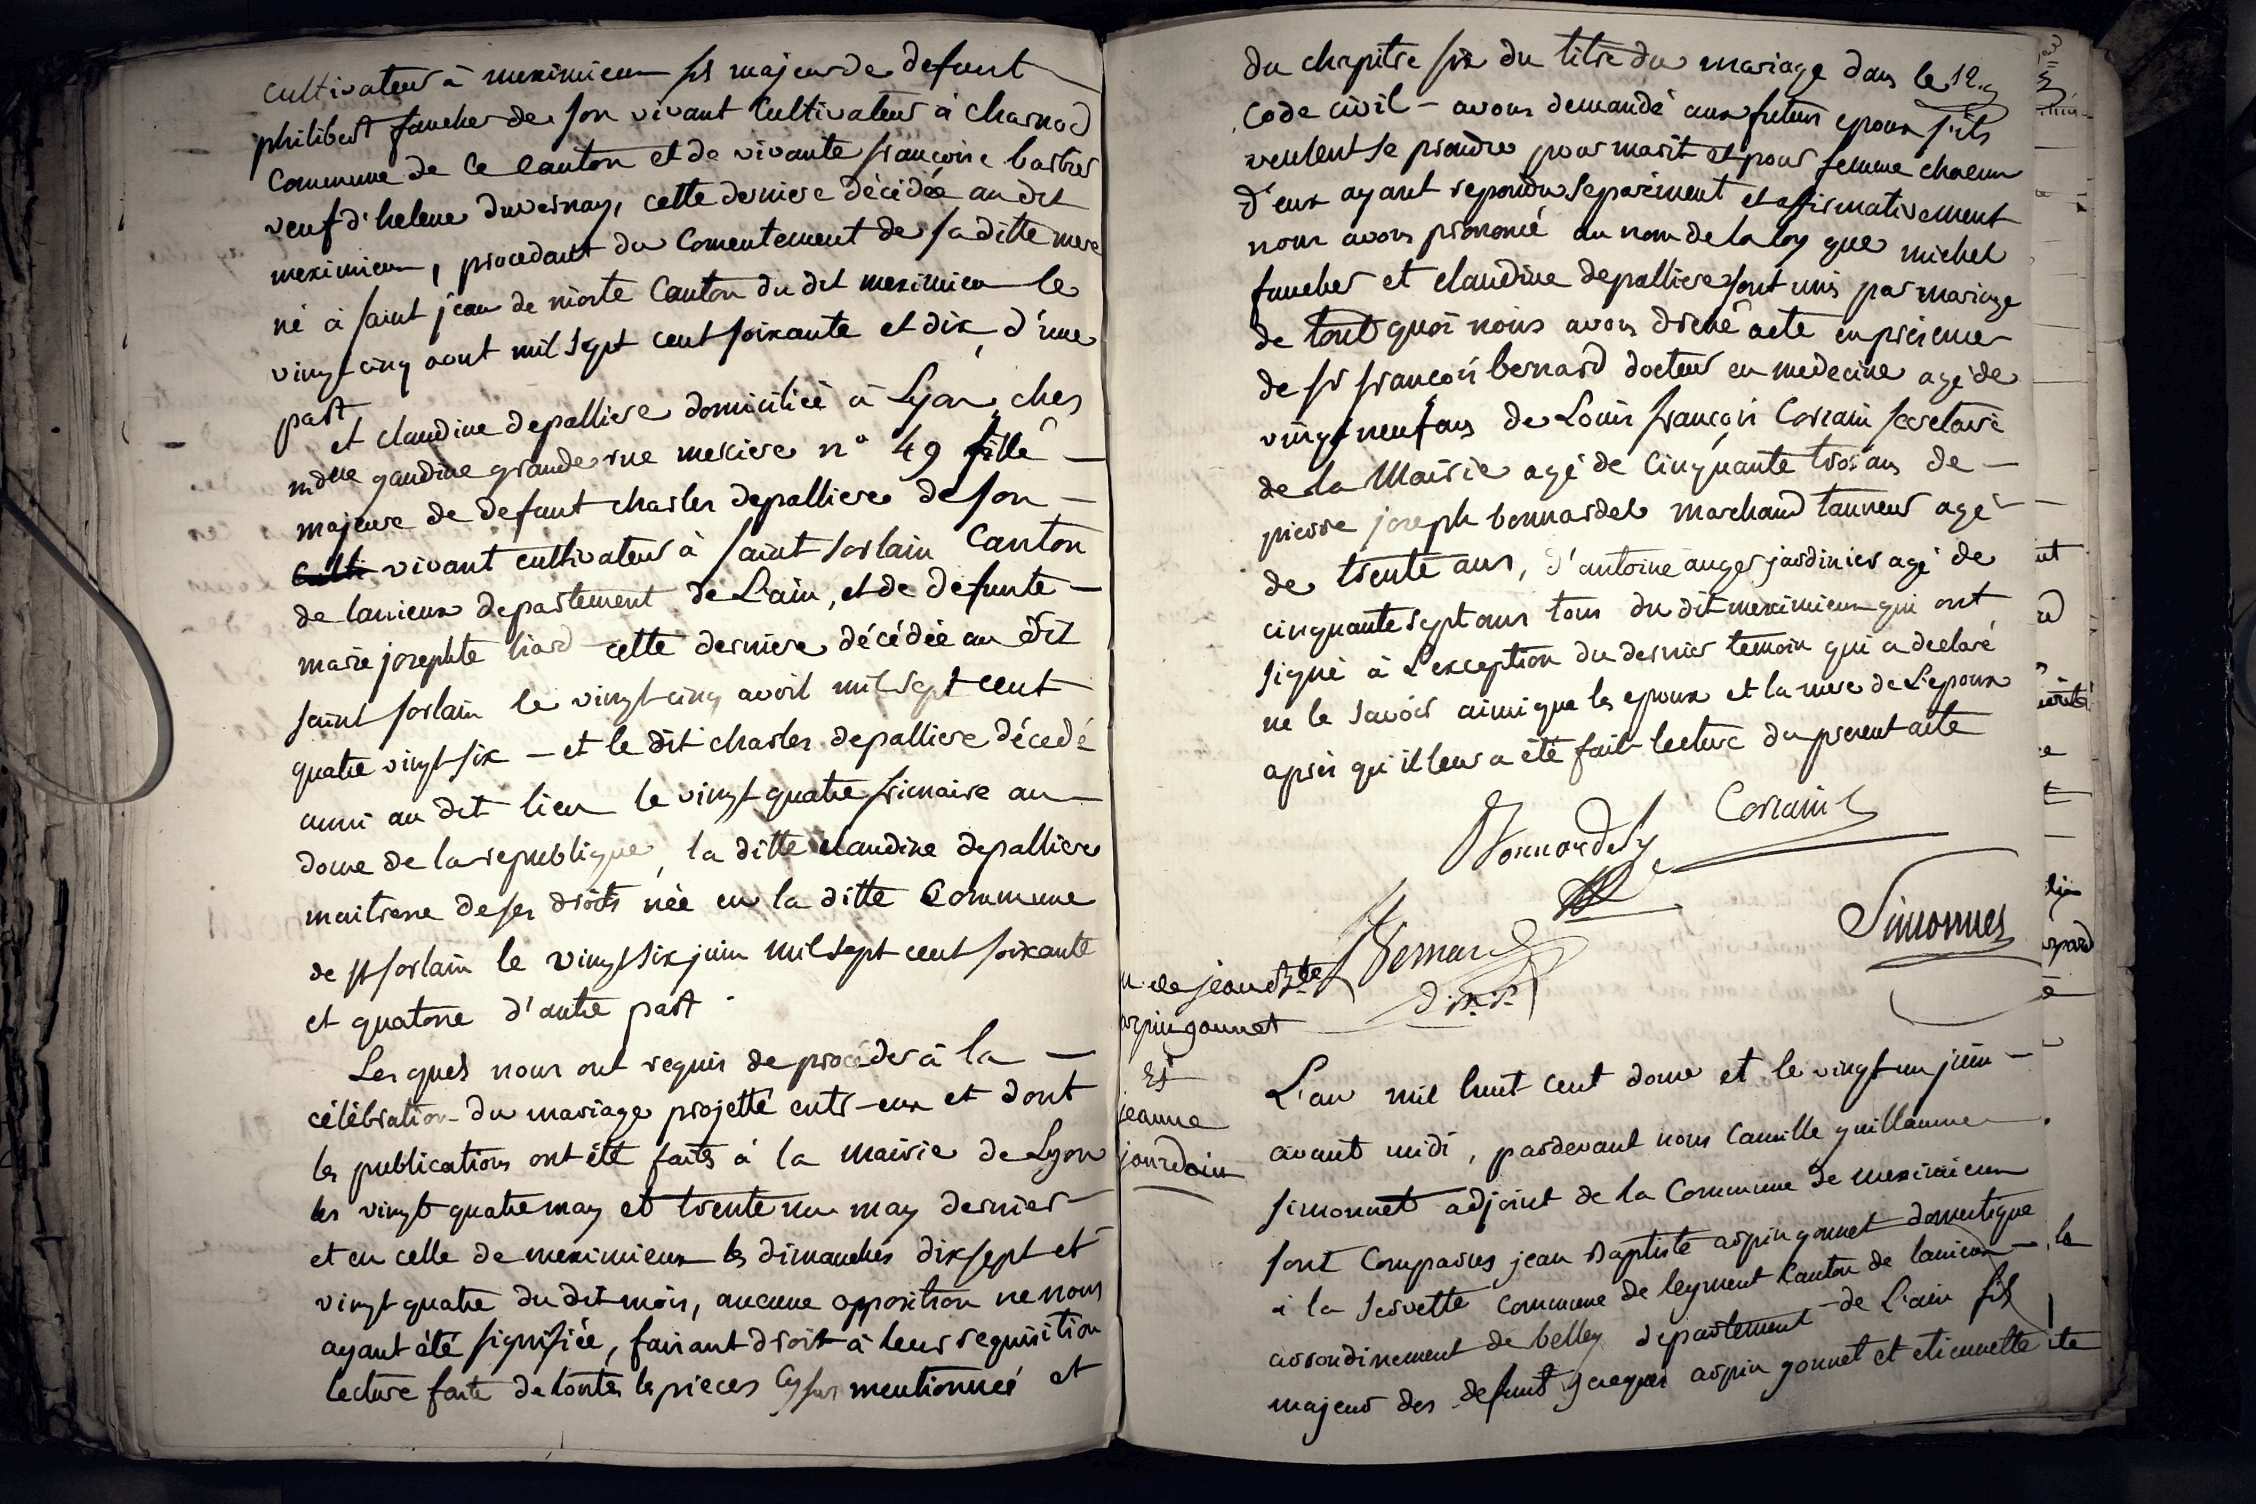 cultivateur à meximieux fils majeur de defunt
philibert faucher de son vivant Cultivateur à Charnod
Commune de Ce Canton et de vivante françoise barbier
veuf d'helene duvernay, cette derniere décédée au dit
meximieux, procedant du Consentement de sa ditte mere
né à saint jean de niorte Canton du dit meximieux le
vingt cinq aout mil sept cent soixante et dix d'une
part
et claudine depalliere domiciliée à Lyon chez
mdlle gaudine grande rue merciere n° 49 fille
majeure de defunt charles depalliere de son
Culti vivant cultivateur à saint sorlain Canton
de lanieux departement de L'ain, et de defunte
marie josephte liard cette derniere décédée au dit
saint sorlain le vingt cinq avril mil sept cent
quatre vingt six - et le dit charles depalliere décedé
aussi au dit lieu le vingt quatre frimaire an
douze de la republique, la ditte claudine depalliere
maitresse de ses droits née en la ditte Commune
de st sorlain le vingt six juin mil sept cent soixante
et quatorze d'autre part.
Les quels nous ont requis de procéder à la
célébration du mariage projetté entr-eux et dont
les publications ont été faites à la mairie de Lyon
les vingt quatre may et trente un may dernier
et en celle de meximieux les dimanches dix sept et
vingt quatre du dit mois, aucune opposition ne nous
ayant été signifiée, faisant droit à leur requisition
lecture faite de toutes les pieces Cy sus mentionnées et
du chapitre six du titre du mariage dans le
Code civil - avons demandé aux futurs epoux s'ils
veulent se prendre pour marit et pour femme chacun
d'eux ayant repondu separément et affirmativement
nous avons prononcé au nom de la loy que michel
faucher et claudine depalliere sont unis par mariage
de tout quoi nous avons dressé acte en présence
de sr françois bernard docteur en medecine agé de
vingt neuf ans de Louis françois Corrain secretaire
de la Mairie agé de Cinquante trois ans de
pierre joseph bonnardel marchand tanneur agé
de trente ans, d'antoine auger jardinier agé de
cinquante sept ans tous du dit meximieux qui ont
signé à L'exception du dernier temoin qui a declaré
ne le savoir ainsi que les epoux et la mere de L'epoux
après qu'il leur a été fait lecture du present acte
Bonnardel Corrain
Bernard Simonnet
d.m.
jean Bte
arpin gonnet
Et
jeanne
jourdain
L'an mil huit cent douze et le vingt un juin
avant midi, pardevant nous Camille guillaume
simonnet adjoint de la Commune de meximieux
sont Comparus jean Baptiste arpin gonnet domestique
à la servette Commune de leyment Canton de lanieux
arrondissement de belley departement de L'ain fils
majeur des defunt jacques arpin gonnet et etiennette